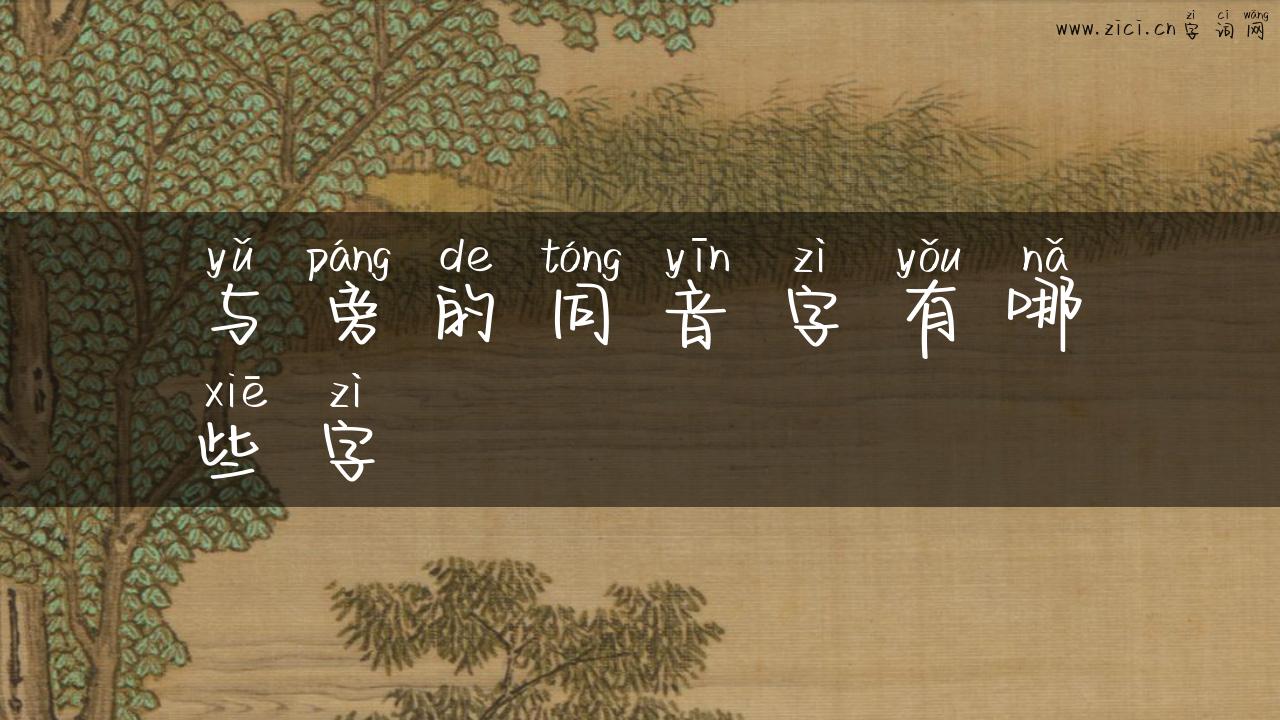 zì cí wǎng
www.zici.cn字词网
yǔ páng de tóng yīn zì yǒu nǎ
与旁的同音字有哪
xiē zì
些字